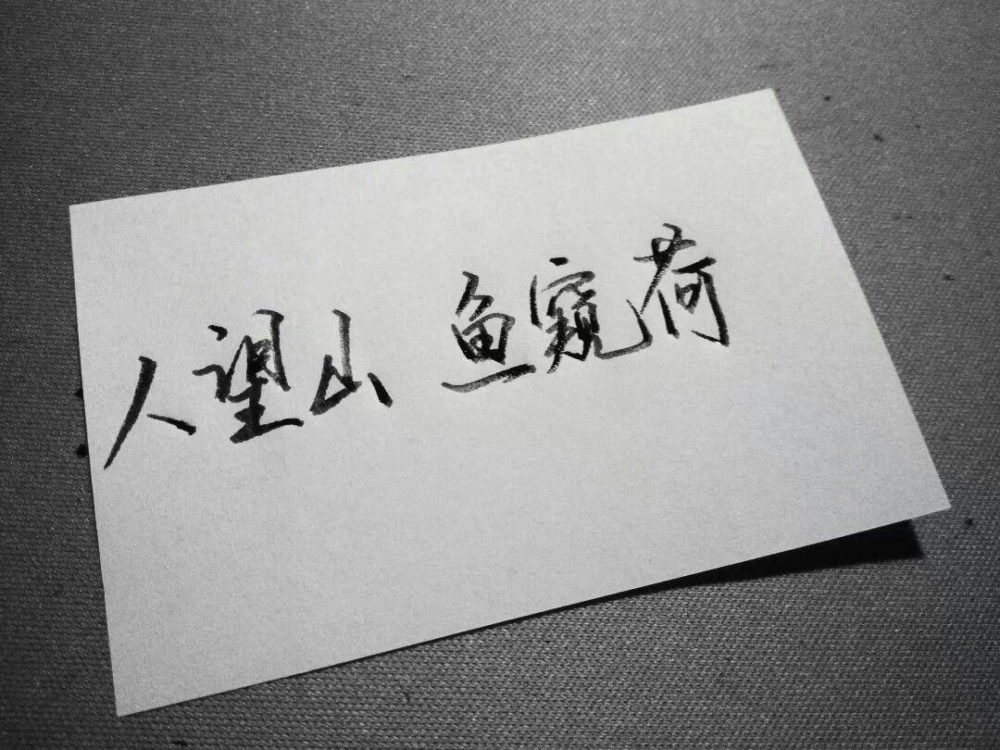 人望山 鱼窥荷